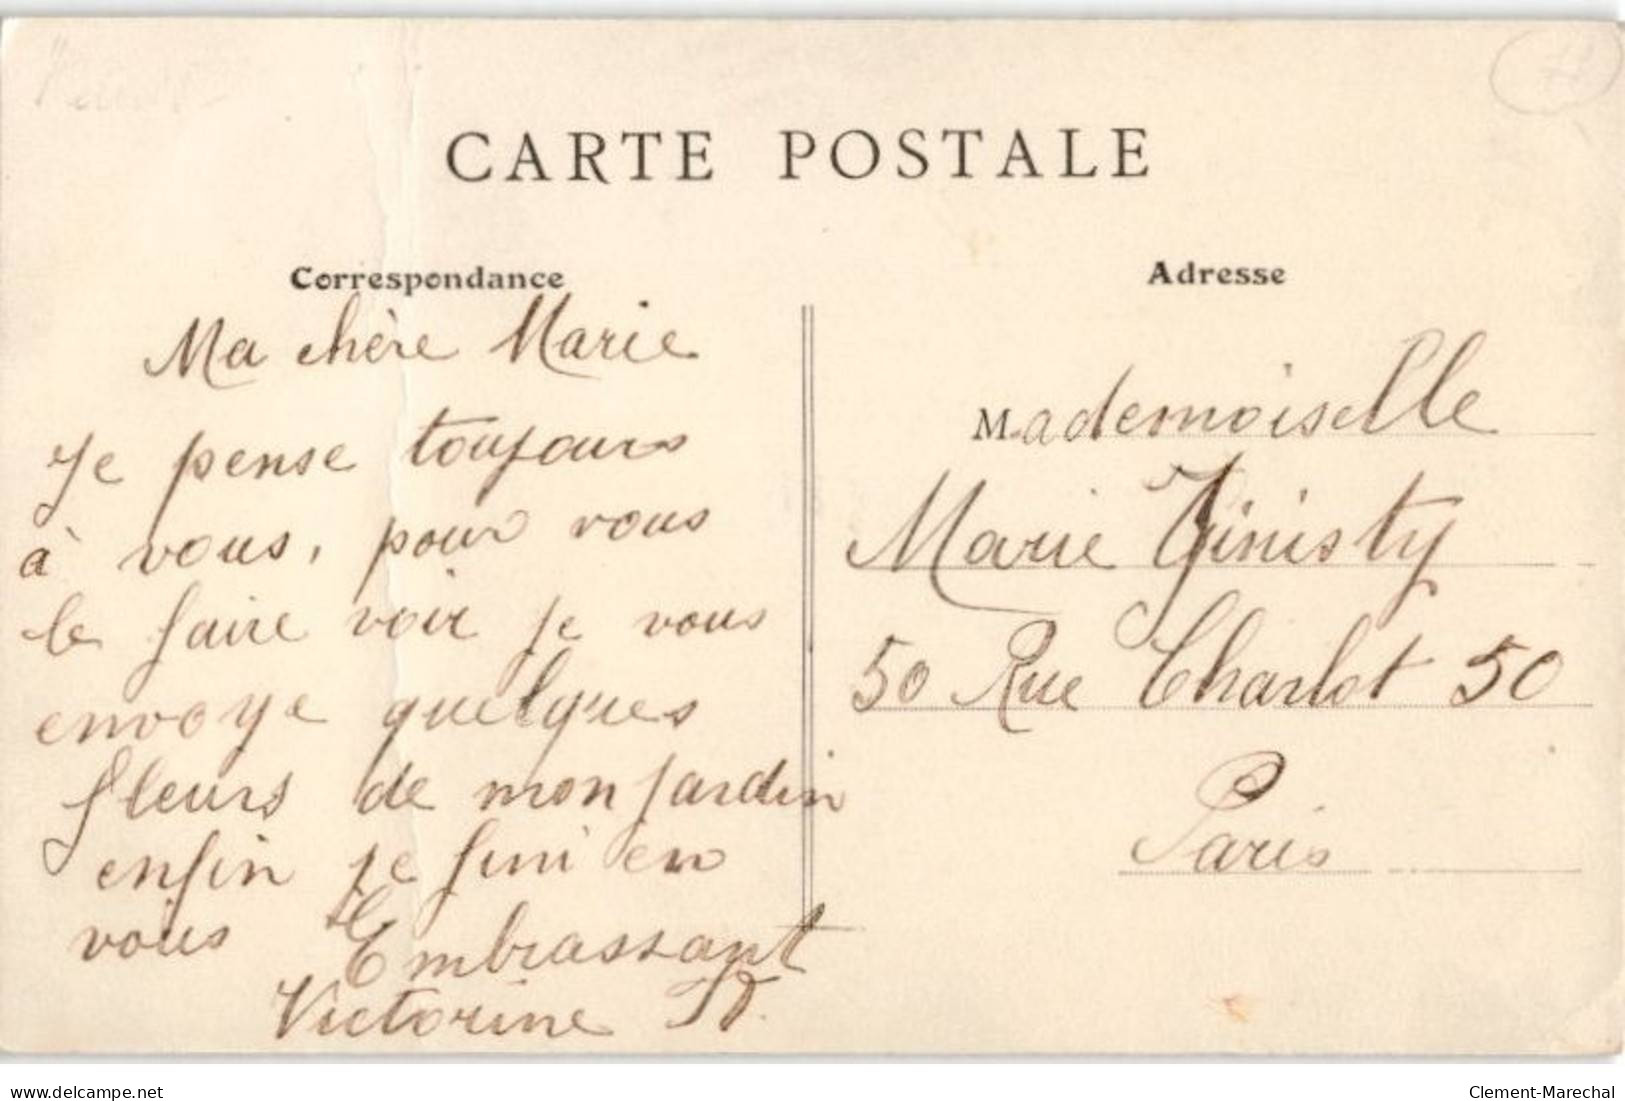 CARTE POSTALE
Correspondance
Ma chère Marie
Je pense toujours
à vous, pour vous
le faire voir je vous
envoye quelques
fleurs de mon jardin
enfin je fini en
vous Embrassant
Victorine D.
Adresse
Mademoiselle
Marie Ginisty
50 Rue Charlot 50
Paris
delcampe.net
Clement-Marechal